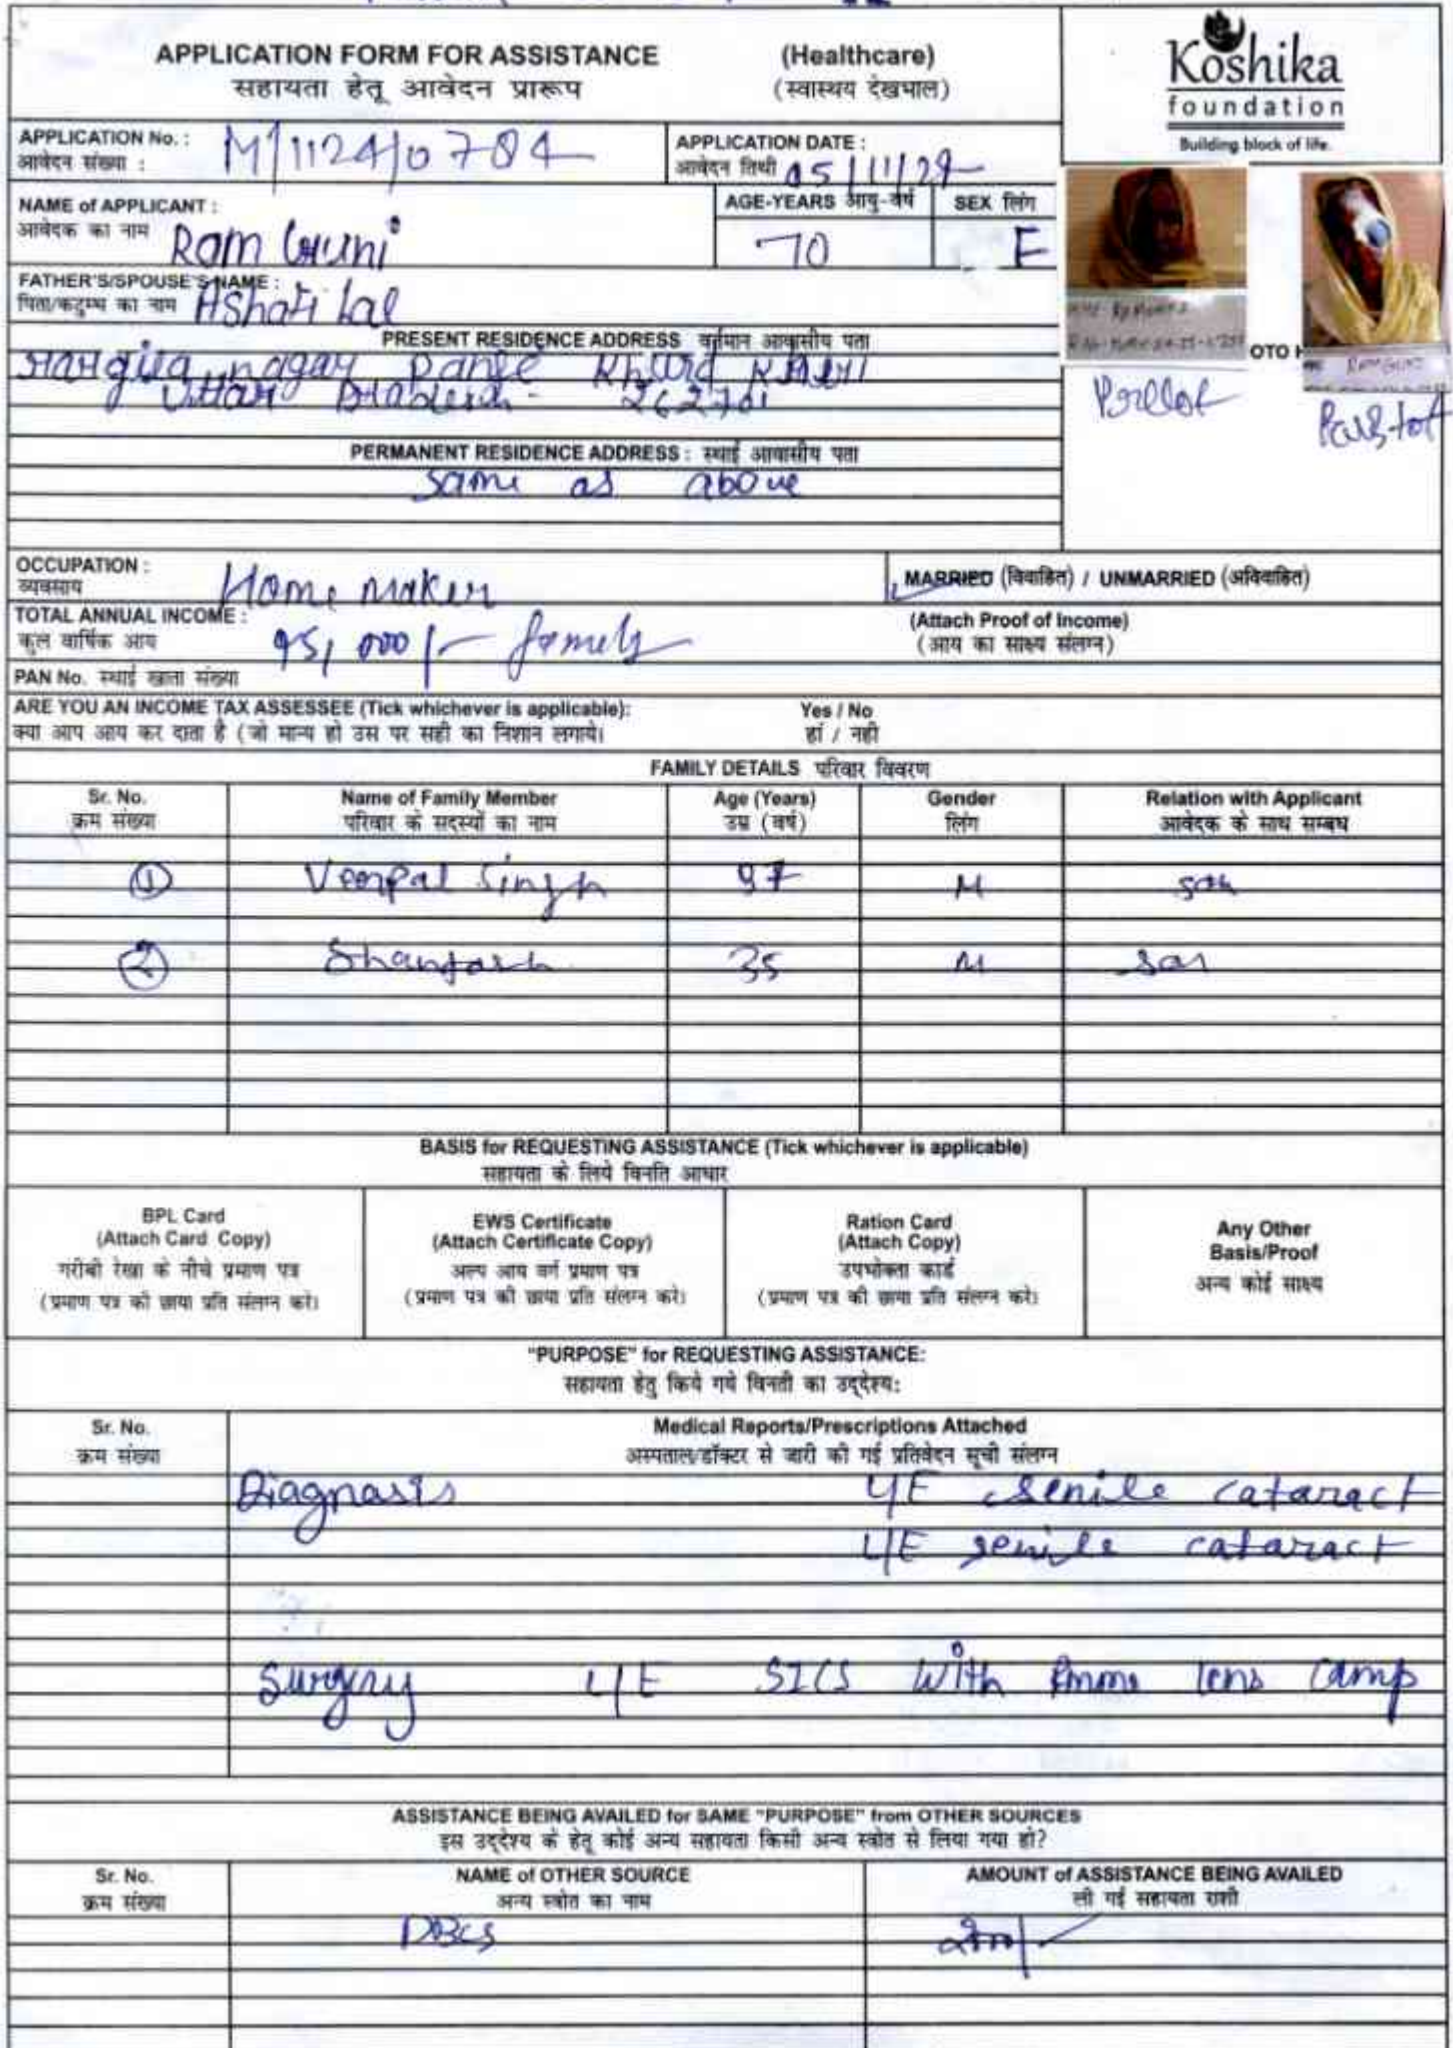 APPLICATION FORM FOR ASSISTANCE (Healthcare)
सहायता हेतू आवेदन प्रारूप (स्वास्थय देखभाल)
Koshika
foundation
Building block of life.
APPLICATION No. : M/1124/0784
आवेदन संख्या :
APPLICATION DATE :
आवेदन तिथी 05/11/24
NAME of APPLICANT :
आवेदक का नाम Ram Guni
AGE-YEARS आयु-वर्ष 70
SEX लिंग F
FATHER'S/SPOUSE'S NAME :
पिता/कटुम्ब का नाम Asharfi Lal
PRESENT RESIDENCE ADDRESS वर्तमान आवासीय पता
nagar Khurd Kheri
Uttar Pradesh - 262701
PERMANENT RESIDENCE ADDRESS : स्थाई आवासीय पता
same as above
OCCUPATION :
व्यवसाय Home maker
MARRIED (विवाहित) / UNMARRIED (अविवाहित)
TOTAL ANNUAL INCOME :
कुल वार्षिक आय 95,000/- family
(Attach Proof of Income)
(आय का साक्ष्य संलग्न)
PAN No. स्थाई खाता संख्या
ARE YOU AN INCOME TAX ASSESSEE (Tick whichever is applicable): Yes / No
क्या आप आय कर दाता है (जो मान्य हो उस पर सही का निशान लगाये। हां / नही
FAMILY DETAILS परिवार विवरण
Sr. No. Name of Family Member Age (Years) Gender Relation with Applicant
क्रम संख्या परिवार के सदस्यों का नाम उम्र (वर्ष) लिंग आवेदक के साथ सम्बध
① Veerpal Singh M son
② 35 M son
BASIS for REQUESTING ASSISTANCE (Tick whichever is applicable)
सहायता के लिये विनति आधार
BPL Card
(Attach Card Copy)
गरीबी रेखा के नीचे प्रमाण पत्र
(प्रमाण पत्र की छाया प्रति संलग्न करे।
EWS Certificate
(Attach Certificate Copy)
अल्प आय वर्ग प्रमाण पत्र
(प्रमाण पत्र की छाया प्रति संलग्न करे।
Ration Card
(Attach Copy)
उपभोक्ता कार्ड
(प्रमाण पत्र की छाया प्रति संलग्न करे।
Any Other
Basis/Proof
अन्य कोई साक्ष्य
"PURPOSE" for REQUESTING ASSISTANCE:
सहायता हेतु किये गये विनती का उद्देश्य:
Sr. No. Medical Reports/Prescriptions Attached
क्रम संख्या अस्पताल/डॉक्टर से जारी की गई प्रतिवेदन सूची संलग्न
Diagnosis L/E senile cataract
L/E senile cataract
Surgery L/E SICS with Pmma lens camp
ASSISTANCE BEING AVAILED for SAME "PURPOSE" from OTHER SOURCES
इस उद्देश्य के हेतू कोई अन्य सहायता किसी अन्य स्त्रोत से लिया गया हो?
Sr. No. NAME of OTHER SOURCE AMOUNT of ASSISTANCE BEING AVAILED
क्रम संख्या अन्य स्त्रोत का नाम ली गई सहायता राशी
DBCS